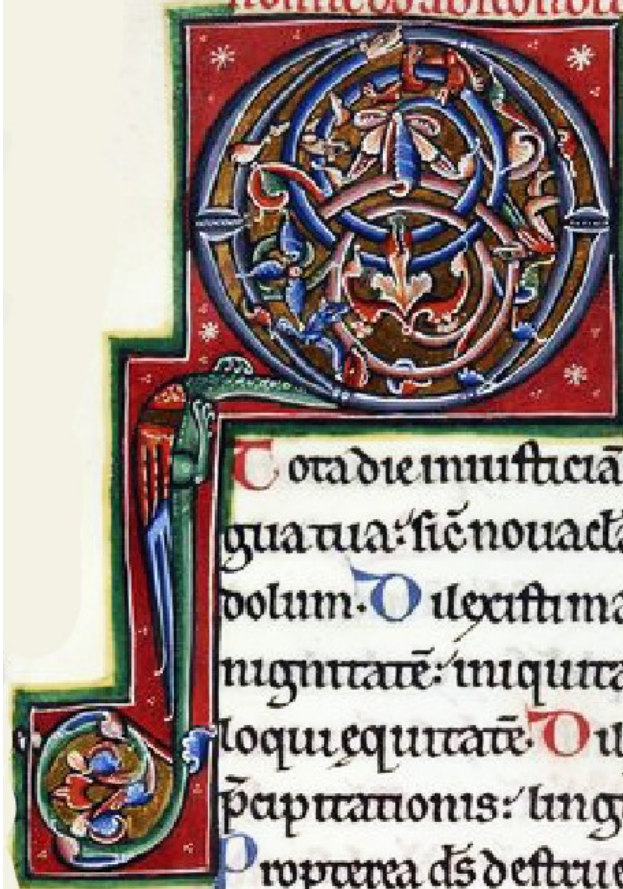 Tota die iniusticiā
gua tua: sic̄ nouacl̄a
dolum. Dilexisti ma
nignitatē: iniquita
loqui equitatē. Dil
p̄cipitationis: ling
Propterea ds̄ destrue